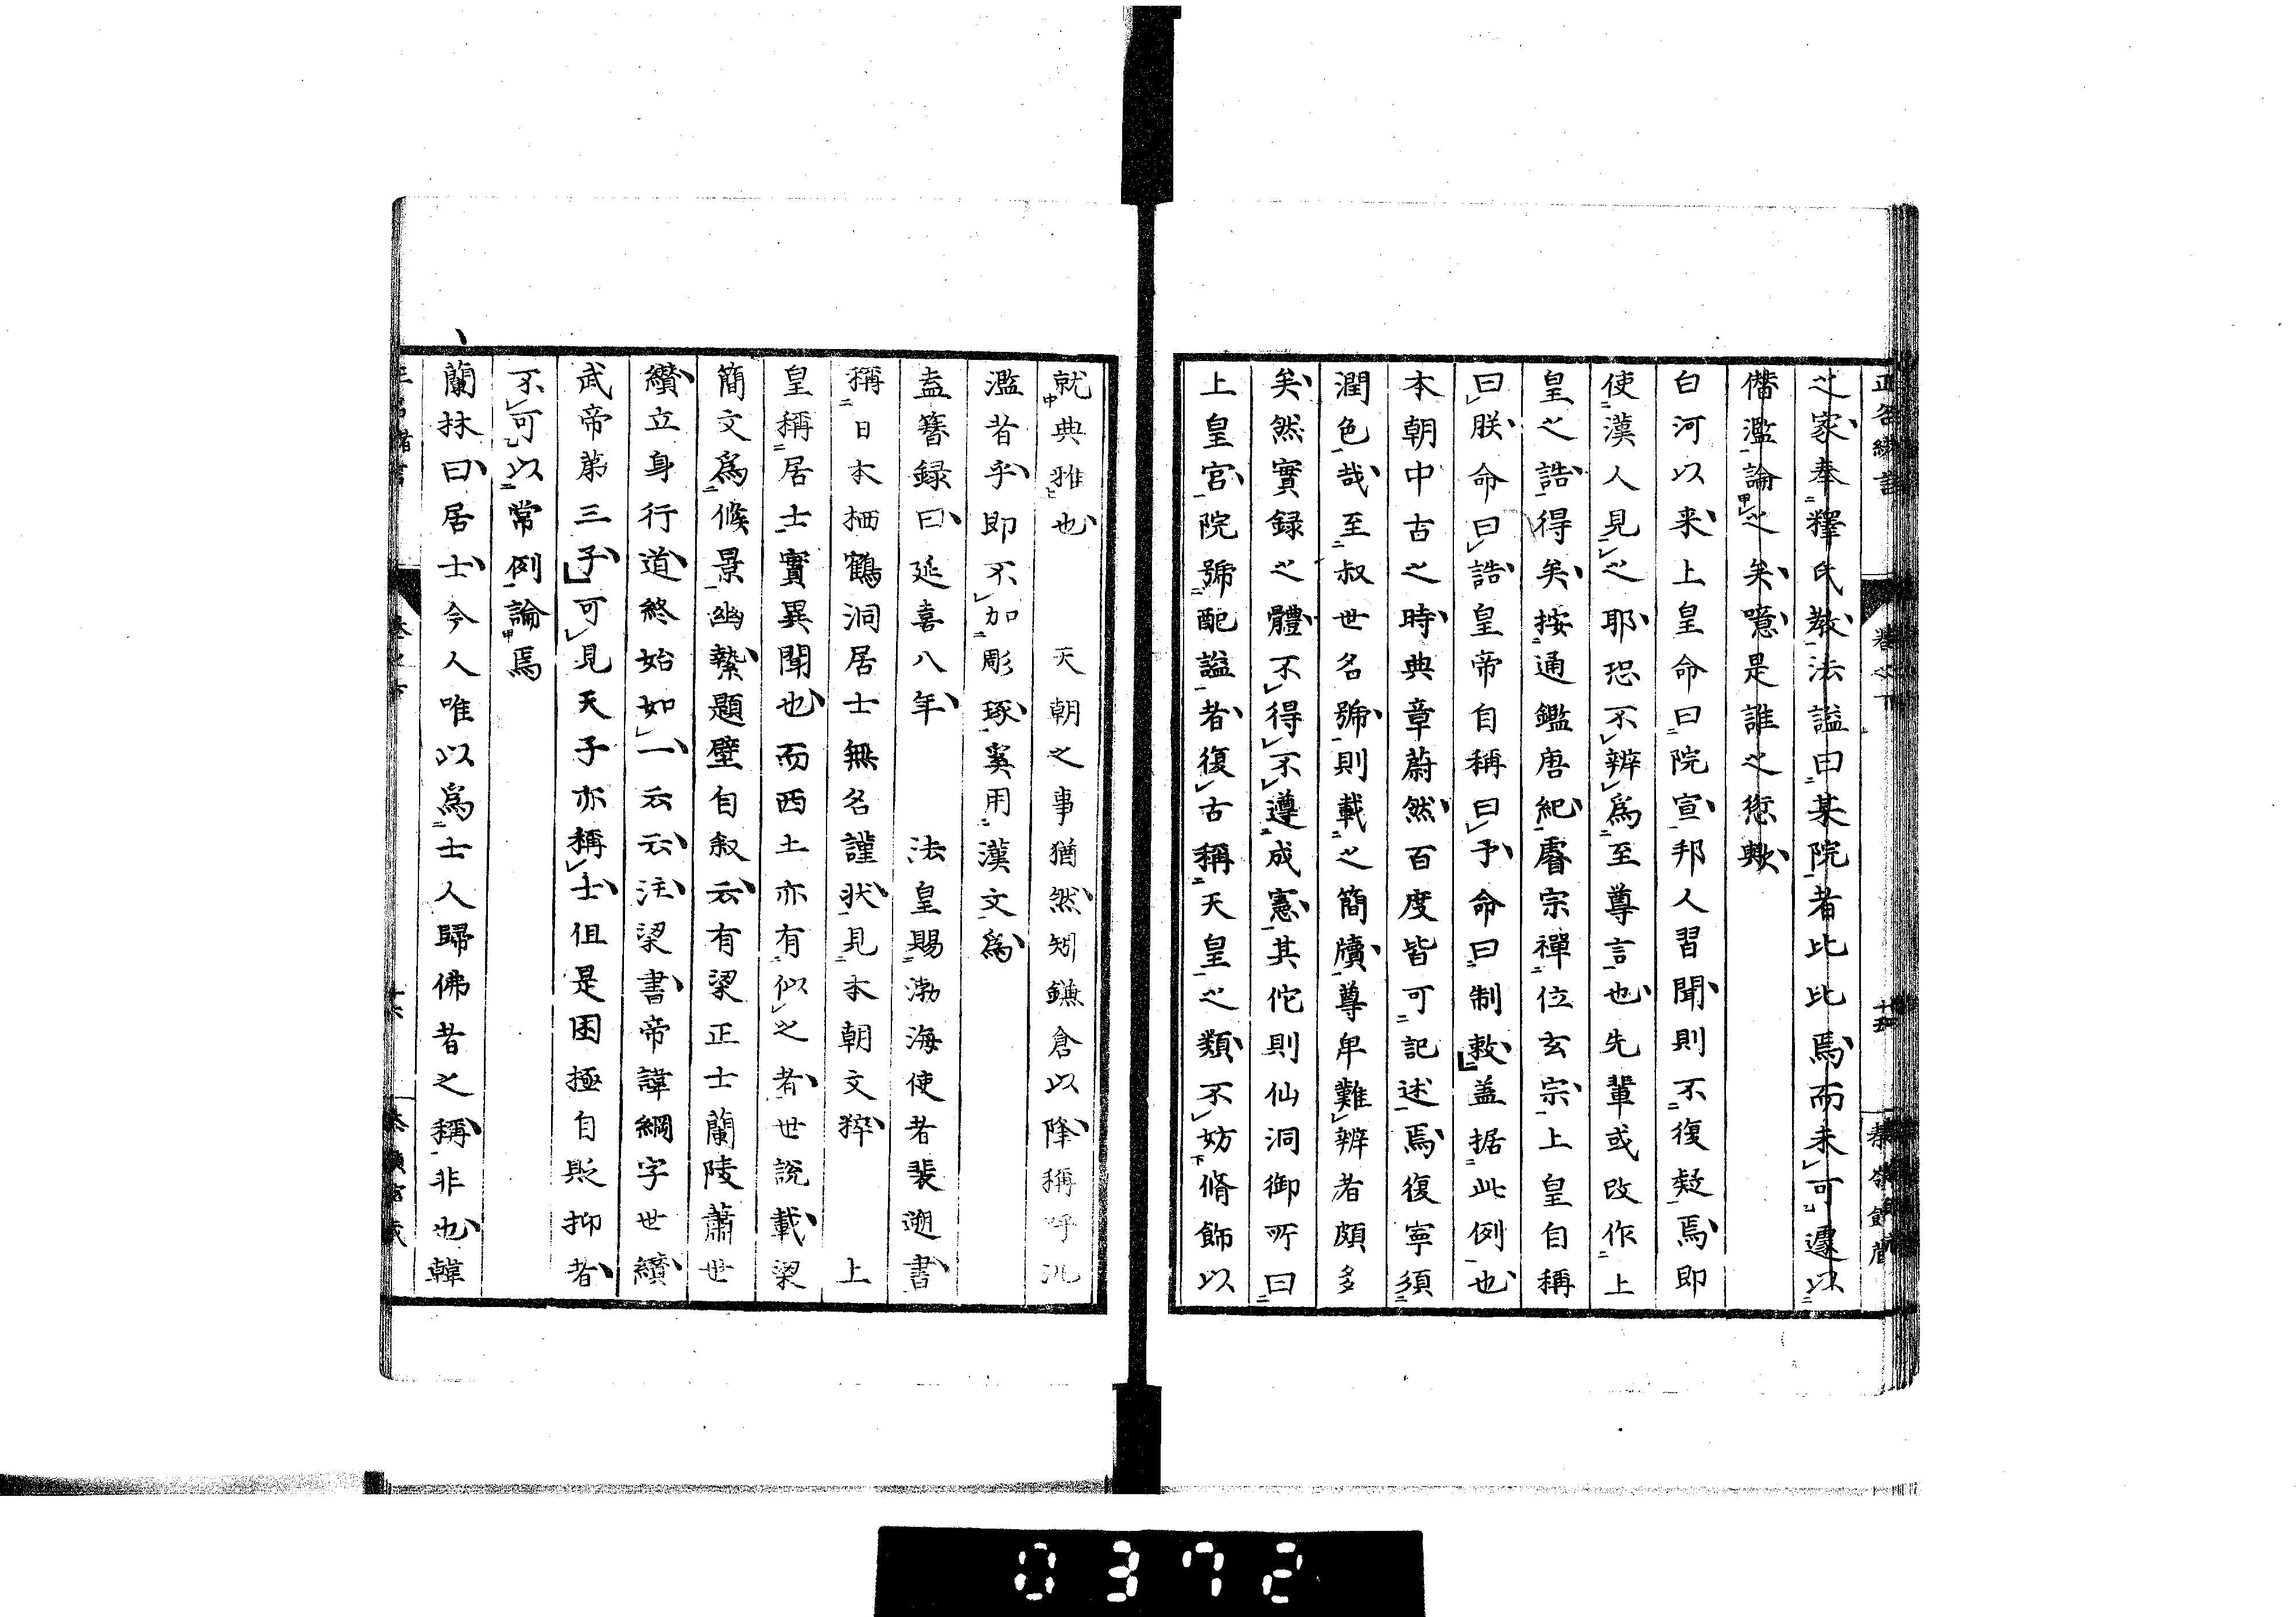 之家奉釋氏教法謚曰某院者比比焉而未可遽以
僭濫論之矣噫是誰之愆歟
白河以来上皇命曰院宣邦人習聞則不復疑焉即
使漢人見之耶恐不辨爲至尊言也先輩或改作上
皇之誥得矣按通鑑唐紀睿宗禪位玄宗上皇自稱
曰朕命曰誥皇帝自稱曰予命曰制敕盖据此例也
本朝中古之時典章蔚然百度皆可記述焉復寧須
潤色哉至叔世名號則載之簡牘尊卑難辨者頗多
矣然實録之體不得不遵成憲其佗則仙洞御所曰
上皇宮院號配謚者復古稱天皇之類不妨脩飾以
就典雅也　天朝之事猶然矧鎌倉以降稱呼
濫者乎即不加彫琢奚用漢文爲
盍簪録曰延喜八年　法皇賜渤海使者裴遡書
稱日本栖鶴洞居士無名謹状見本朝文粹　上
皇稱居士實異聞也而西土亦有似之者世說載梁
簡文爲候景幽縶題壁自叙云有梁正士蘭陵蕭世
纘立身行道終始如一云云注梁書帝諱綱字世纘
武帝第三子可見天子亦稱士但是困極自貶抑者
不可以常例論焉
蘭抹曰居士今人唯以爲士人歸佛者之稱非也韓